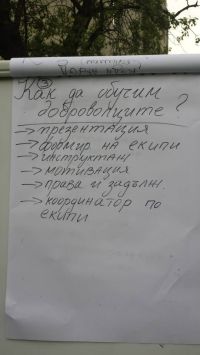 ③
Как да обучим
доброволците?
→ презентация
→ формир на екипи
→ инструктаж
→ мотивация
→ права и задълж.
→ координатор по
екипи